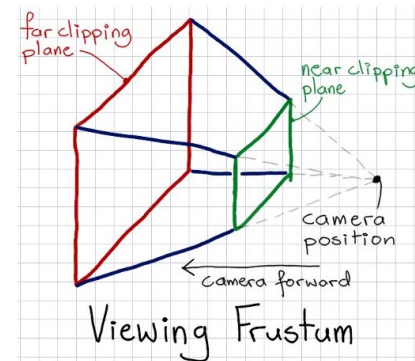 far clipping
plane
near clipping
plane
camera
position
camera forward
Viewing Frustum